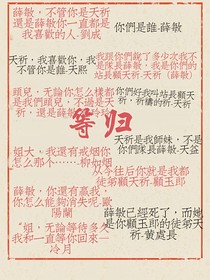 薛敏，不管你是天祈
還是薛敏你一直都是
我喜歡的人-劉成
你們是誰-薛敏
天祈，我喜歡你，我
不管你是誰-天熙
我跟你們說了多少次我不
是隊長薛敏，我是你們的
站長顧天祈-天祈（薛敏）
頭兒，無論你怎么樣都
是我們頭兒，不過是天
祈，還是薛敏
你們好我叫站長顧天
祈，祈禱的祈-天祈
等归
天祈是我師妹，不是
你們隊長薛敏-天益
姐夫，我還有戒烟你
怎么那个……柳如烟
从今往后你就是我都
徒弟顧天祈-顧玉郎
薛敏，你還有贏我，
你怎么能夠消失呢-歐
陽蘭
薛敏已經死了，而她
是你顧玉郎的徒弟天
祈-黄處長
"姐，无論等待多久
我和一直等你回來—
冷月